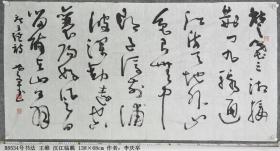 楚塞三湘接
荆门九派通
江流天地外山
色有无中
郡邑浮前浦
波澜动远空
襄阳好风日
留醉与山翁
B8534号书法 王维 汉江临眺 138×69cm 作者:李庆军